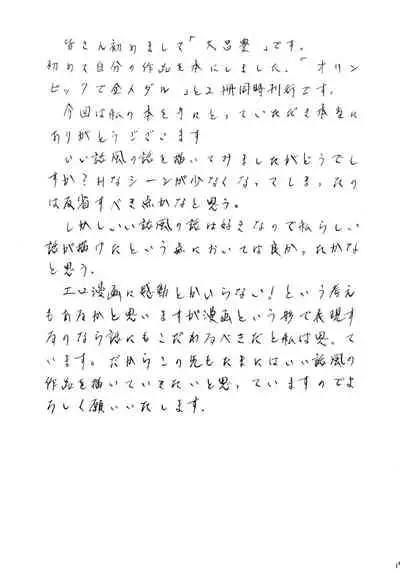 皆さん初めまして「大呂墨」です。
初めて自分の作品を本にしました。「オリン
ピックで金メダル」と2冊同時刊行です。
今回は私の本を手にとっていただき本当に
ありがとうございます
いい話風の話を描いてみましたがどうでし
すか?Hなシーンが少なくなってしまったの
は反省すべき点かなと思う。
しかしいい話風の話は好きなので私らしい
話が描けたという点においては良かったかな
と思う。
エロ漫画に感動とかいらない!という考え
もあるかと思いますが漫画という形で表現す
るのなら話にもこだわるべきだと私は思って
います。だからこの先もたまにはいい話風の
作品を描いていきたいと思っていますのでよ
ろしく願いいたします.